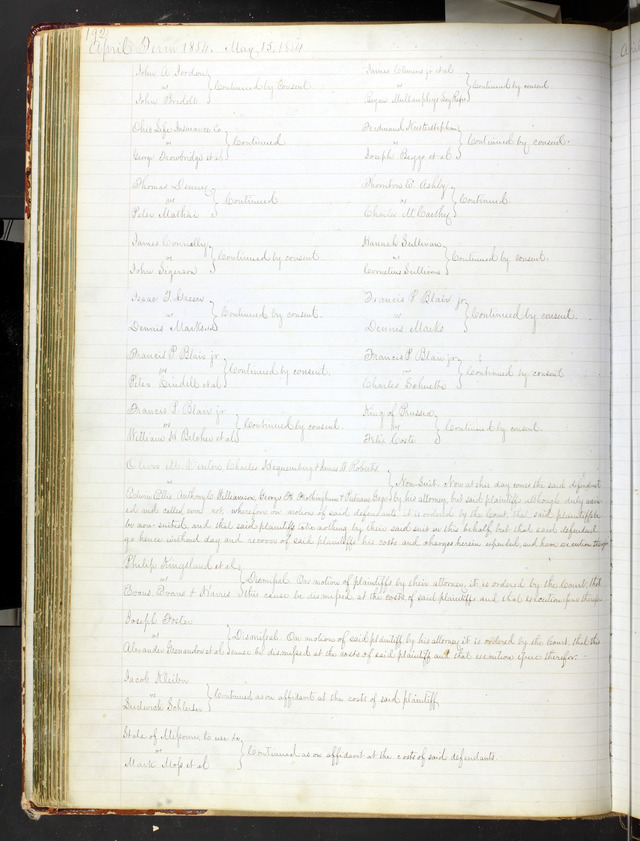 192
April Term 1854. May, 15, 1854
John A. Jordan
vs } Continued by Consent
John Priddle
James Clemens jr et al
vs } Continued by consent
Bryan Mullanphys Legl Reps
Ohio Life Insurance Co.
vs } Continued
George Trowbridge et al
Ferdinand
vs } Continued by consent.
Joseph Boggs et al
Thomas Denny
vs } Continued
Peter Mathias
Thornton E. Ashby
vs } Continued
Charles McCarthy
James Connolly
vs } Continued by consent
John Sigerson
Hannah Sullivan
vs } Continued by consent.
Cornelius Sullivan
Isaac T. Greene
vs } Continued by consent.
Dennis Marks
Francis P Blair jr
vs } Continued by consent.
Dennis Marks
Francis P. Blair jr.
vs } Continued by consent.
Peter Lindell et al
Francis P. Blair jr
vs } Continued by consent
Charles
Francis P. Blair jr
vs } Continued by consent.
William H. Belcher et al
King of Prussia
vs } Continued by consent.
Felix Coste
Oliver M. Winter, Charles & James H. Roberts
vs } Non-Suit. Now at this day comes the said defendant
Anthony C. Williamson, George H. & by his attorney, but said plaintiffs although duly warn-
ed and called come not, wherefore on motion of said defendants it is ordered by the Court, that said plaintiffs
be non-suited, and that said plaintiffs take nothing by their said suit in this behalf but that said defendant
go hence without day and recover of said plaintiffs his costs and charges herein expended, and have execution therefor
Philip Kingsland et al
vs } Dismissed. On motion of plaintiffs by their attorney, it is ordered by the Court, that
Evans, Evans & Harris this cause be dismissed at the costs of said plaintiffs and that execution issue therefor
Joseph Foster
vs } Dismissed. On motion of said plaintiff by his attorney it is ordered by the Court, that this
Alexander et al cause be dismissed at the costs of said plaintiff, and that execution issue therefor.
Jacob Kleiber
vs } Continued as on affidavit at the costs of said plaintiff
Ludwick
State of Missouri to use &c
vs } Continued as on affidavit at the costs of said defendants.
Mark Moss et al